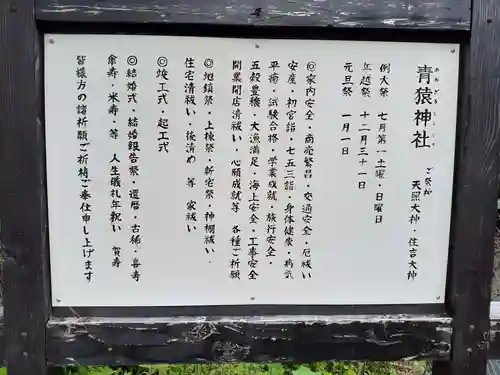 青猿神社
あおざるじんじゃ
ご祭神
天照大神・住吉大神
例大祭 七月第一土曜・日曜日
年越祭 十二月三十一日
元旦祭 一月一日
◎家内安全・商売繁昌・交通安全・厄祓い
安産・初宮詣・七五三詣・身体健康・病気
平癒・試験合格・学業成就・旅行安全・
五穀豊穣・大漁満足・海上安全・工事安全
開業開店清祓い・心願成就等 各種ご祈願
◎地鎮祭・上棟祭・新宅祭・神棚祓い・
住宅清祓い・後清め 等 家祓い
◎竣工式・起工式
◎結婚式・結婚報告祭・還暦・古稀・喜寿
傘寿・米寿・等 人生儀礼年祝い 賀寿
皆様方の諸祈願ご祈祷ご奉仕申し上げます